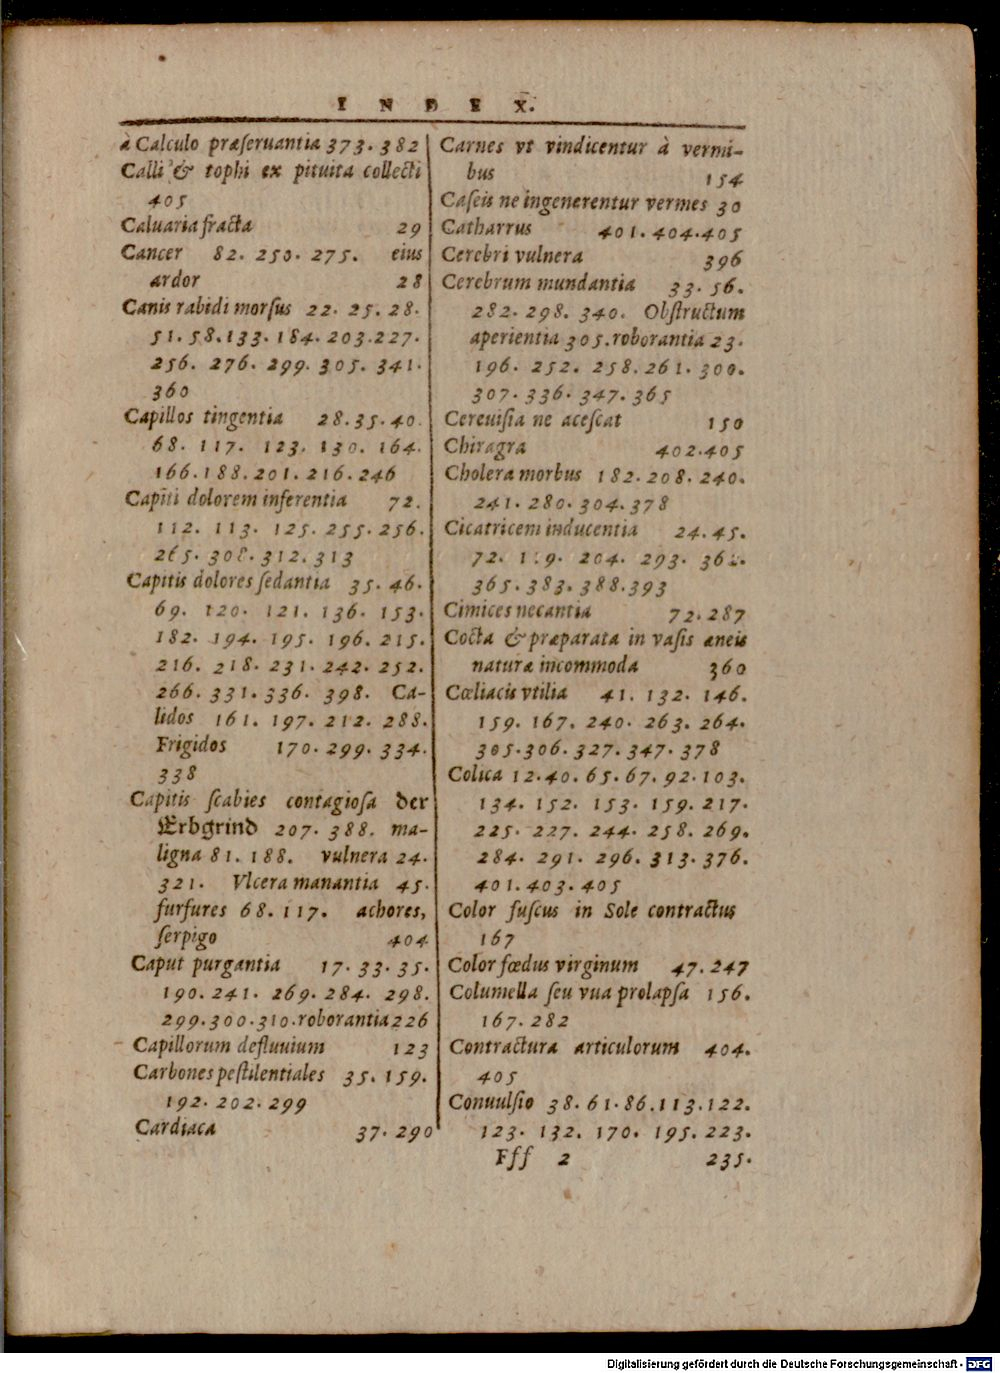 INDEX.
à Calculo præſeruantia 373. 382
Calli & tophi ex pituita collecti
405
Caluaria fracta 29
Cancer 82. 250. 275. eius
ardor 28
Canis rabidi morſus 22. 25. 28.
51. 58. 133. 184. 203. 227.
256. 276. 299. 305. 341.
360
Capillos tingentia 28. 35. 40.
68. 117. 123. 130. 164.
166. 188. 201. 216. 246
Capiti dolorem inferentia 72.
112. 113. 125. 255. 256.
265. 308. 312. 313
Capitis dolores ſedantia 35. 46.
69. 120. 121. 136. 153.
182. 194. 195. 196. 215.
216. 218. 231. 242. 252.
266. 331. 336. 398. Ca-
lidos 161. 197. 212. 288.
Frigidos 170. 299. 334.
338
Capitis ſcabies contagioſa der
Erbgrind 207. 388. ma-
ligna 81. 188. vulnera 24.
321. Vlcera manantia 45.
furfures 68. 117. achores,
ſerpigo 404
Caput purgantia 17. 33. 35.
190. 241. 269. 284. 298.
299. 300. 310. roborantia 226
Capillorum defluuium 123
Carbones peſtilentiales 35. 159.
192. 202. 299
Cardiaca 37. 290
Carnes vt vindicentur à vermi-
bus 154
Caſeis ne ingenerentur vermes 30
Catharrus 401. 404. 405
Cerebri vulnera 396
Cerebrum mundantia 33. 56.
282. 298. 340. Obſtructum
aperientia 305. roborantia 23.
196. 252. 258. 261. 300.
307. 336. 347. 365
Cereuiſia ne aceſcat 150
Chiragra 402. 405
Cholera morbus 182. 208. 240.
241. 280. 304. 378
Cicatricem inducentia 24. 45.
72. 204. 293.
365. 383. 388. 393
Cimices necantia 72. 287
Cocta & præparata in vaſis æneis
naturæ incommoda 360
Cœliacis vtilia 41. 132. 146.
159. 167. 240. 263. 264.
305. 306. 327. 347. 378
Colica 12. 40. 65. 67. 92. 103.
134. 152. 153. 159. 217.
225. 227. 244. 258. 269.
284. 291. 296. 313. 376.
401. 403. 405
Color fuſcus in Sole contractus
167
Color fœdus virginum 47. 247
Columella ſeu vua prolapſa 156.
167. 282
Contractura articulorum 404.
405
Conuulſio 38. 61. 86. 113. 122.
123. 132. 170. 195. 223.
Fff 2 235.
Digitalisierung gefördert durch die Deutsche Forschungsgemeinschaft - DFG